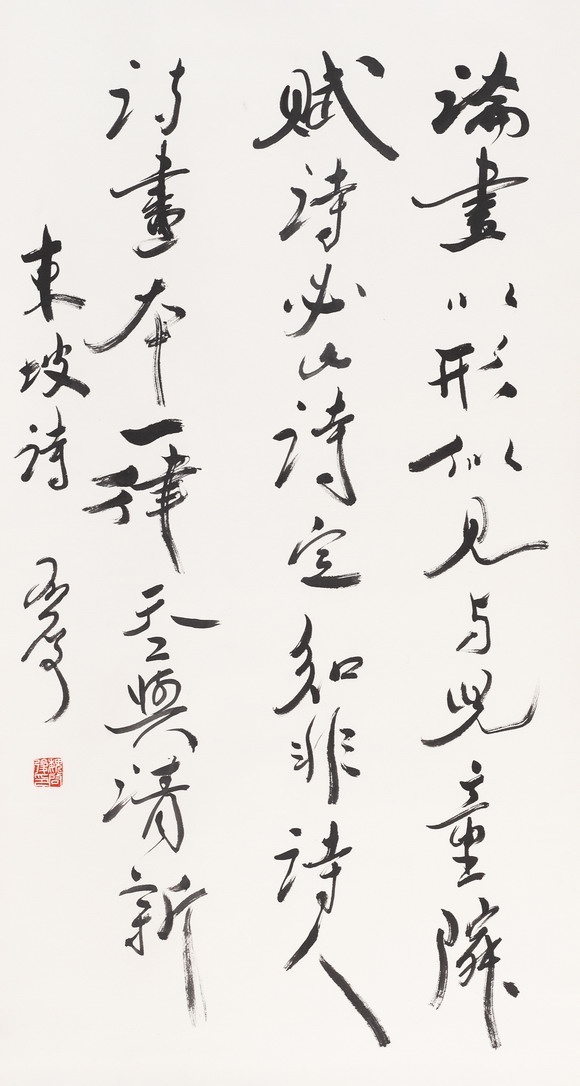 論畫以形似見與兒童隣
賦詩必此詩定知非詩人
詩畫本一律天工與清新
東坡詩